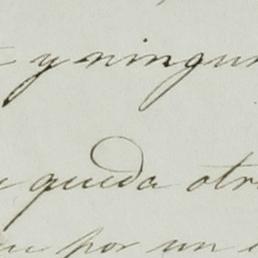 y ningun
queda otr
por un